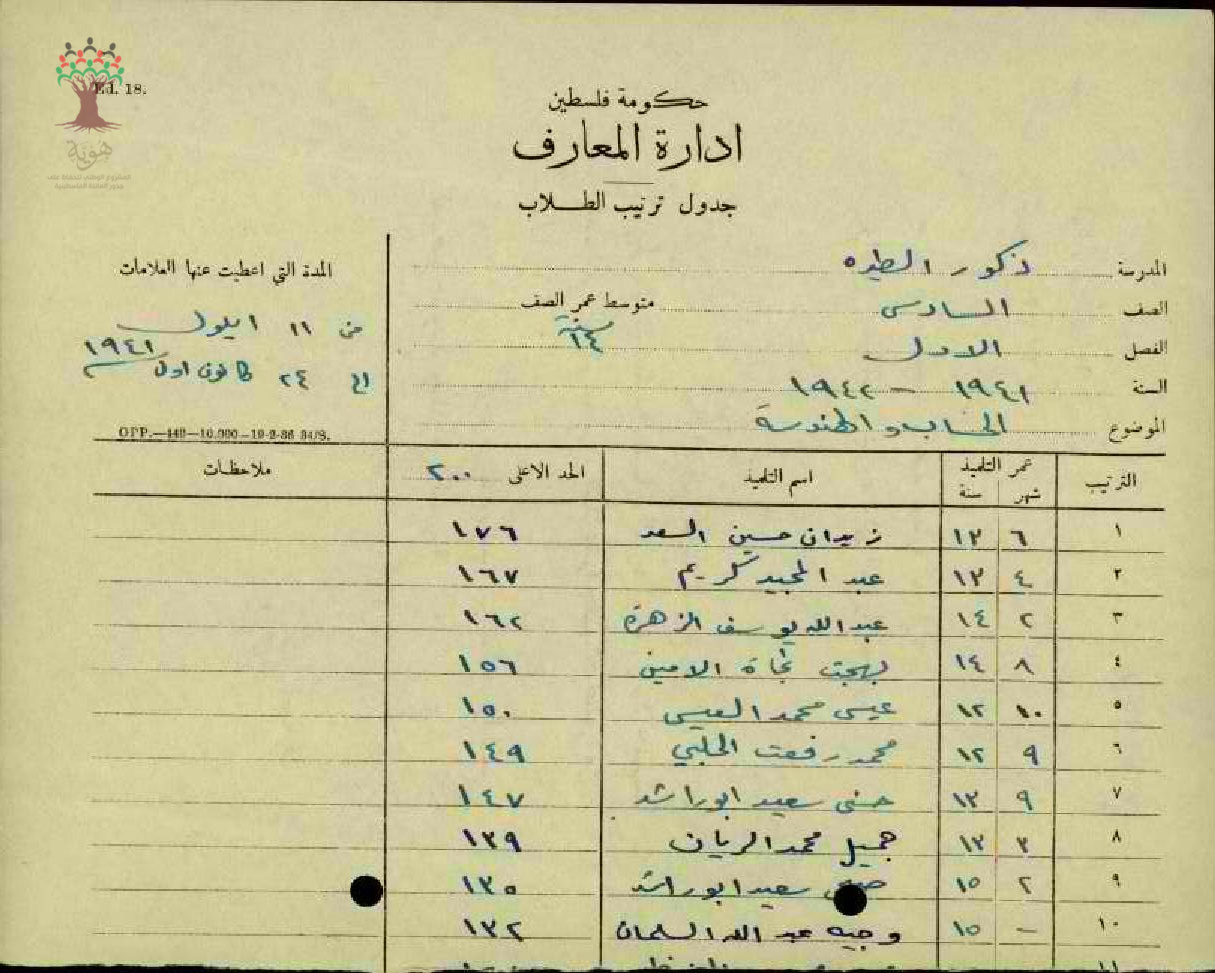 Ed. 18.
هوية
المشروع الوطني للحفاظ على
جذور العائلة الفلسطينية
حكومة فلسطين
ادارة المعارف
جدول ترتيب الطلاب
المدرسة ذكور الطيره
الصف السادس متوسط عمر الصف ١٤ سنة
الفصل الاول
السنة ١٩٤١ - ١٩٤٢
الموضوع الحساب والهندسة
المدة التي اعطيت عنها العلامات
من ١١ ايلول
الى ٢٤ كانون اول ١٩٤١
OPP.—449—10.000—19-2-36 34/S.
الترتيب عمر التلميذ شهر سنة اسم التلميذ الحد الاعلى ٢٠٠ ملاحظات
١ ٦ ١٣ زيدان حسين السعد ١٧٦
٢ ٤ ١٣ عبد المجيد كريم ١٦٧
٣ ٢ ١٤ عبد الله يوسف الزهرة ١٦٢
٤ ٨ ١٤ بهجت نجاة الامين ١٥٦
٥ ١٠ ١٢ عيسى محمد العيسى ١٥٠
٦ ٩ ١٢ محمد رفعت الحلبي ١٤٩
٧ ٩ ١٣ حسني سعيد ابو راشد ١٤٧
٨ ٣ ١٣ جميل محمد الريان ١٣٩
٩ ٢ ١٥ سعيد ابو راشد ١٣٥
١٠ - ١٥ وجيه عبد الله السلمان ١٣٢
١١